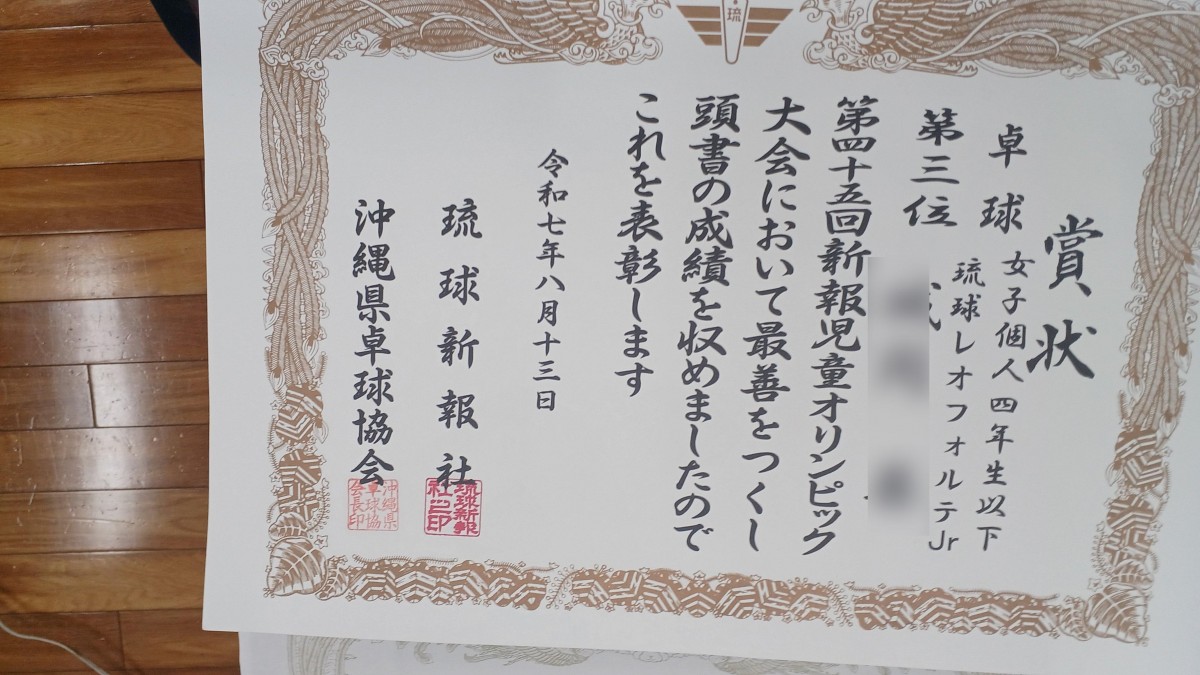 琉
賞状
卓球 女子個人四年生以下
琉球レオフォルテJr
第三位
第四十五回新報児童オリンピック
大会において最善をつくし
頭書の成績を収めましたので
これを表彰します
令和七年八月十三日
琉球新報社
琉球新報社之印
沖縄県卓球協会
沖縄県卓球協会長印